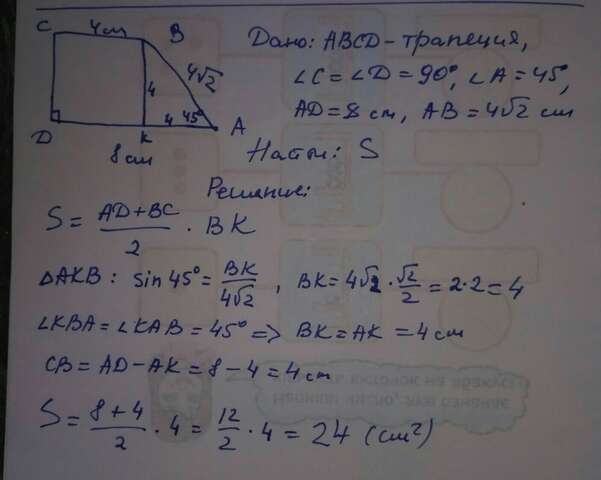 C 4 см B
4√2
4
4 45° A
D K
8 см
Дано: ABCD - трапеция,
∠C = ∠D = 90°, ∠A = 45°,
AD = 8 см, AB = 4√2 см
Найти: S
Решение:
S = (AD + BC)/2 · BK
△AKB: sin 45° = BK/4√2, BK = 4√2 · √2/2 = 2·2 = 4
∠KBA = ∠KAB = 45° => BK = AK = 4 см
CB = AD - AK = 8 - 4 = 4 см
S = (8 + 4)/2 · 4 = 12/2 · 4 = 24 (см²)